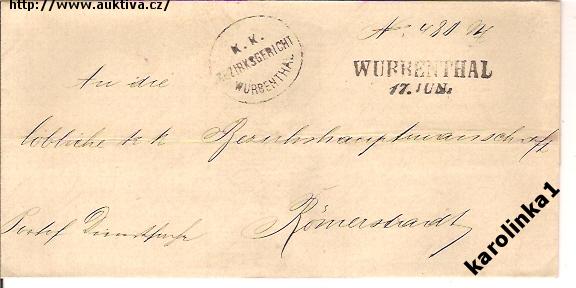 http://www.auktiva.cz/
K. K.
BEZIRKSGERICHT
WURBENTHAL
No. 480
WURBENTHAL
17. JUN.
An die
löbliche k k Bezirkshauptmannschaft
Römerstadt
Portof Dienstsache
karolinka1